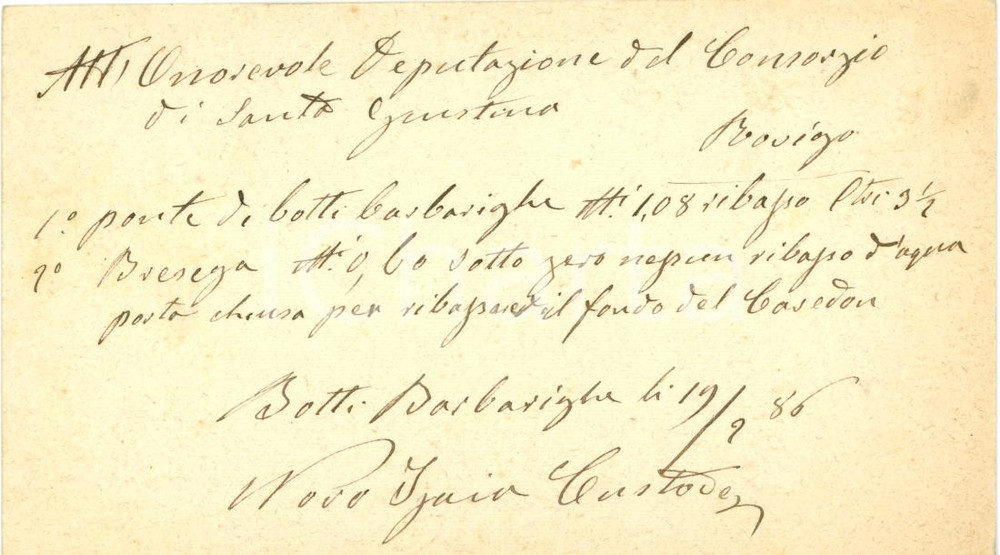 All' Onorevole Deputazione del Consorzio
di Santa Giustina
Rovigo
1.° ponte di botti barbarighe Mt.i 1,08 ribasso Ctri 3 ½
2° Bresega Mt.i 0,60 sotto zero nessun ribasso d'aqua
porta chiusa per ribassared il fondo del Cavedon
Botti Barbarighe li 19/2 86
Novo Isaia Custode